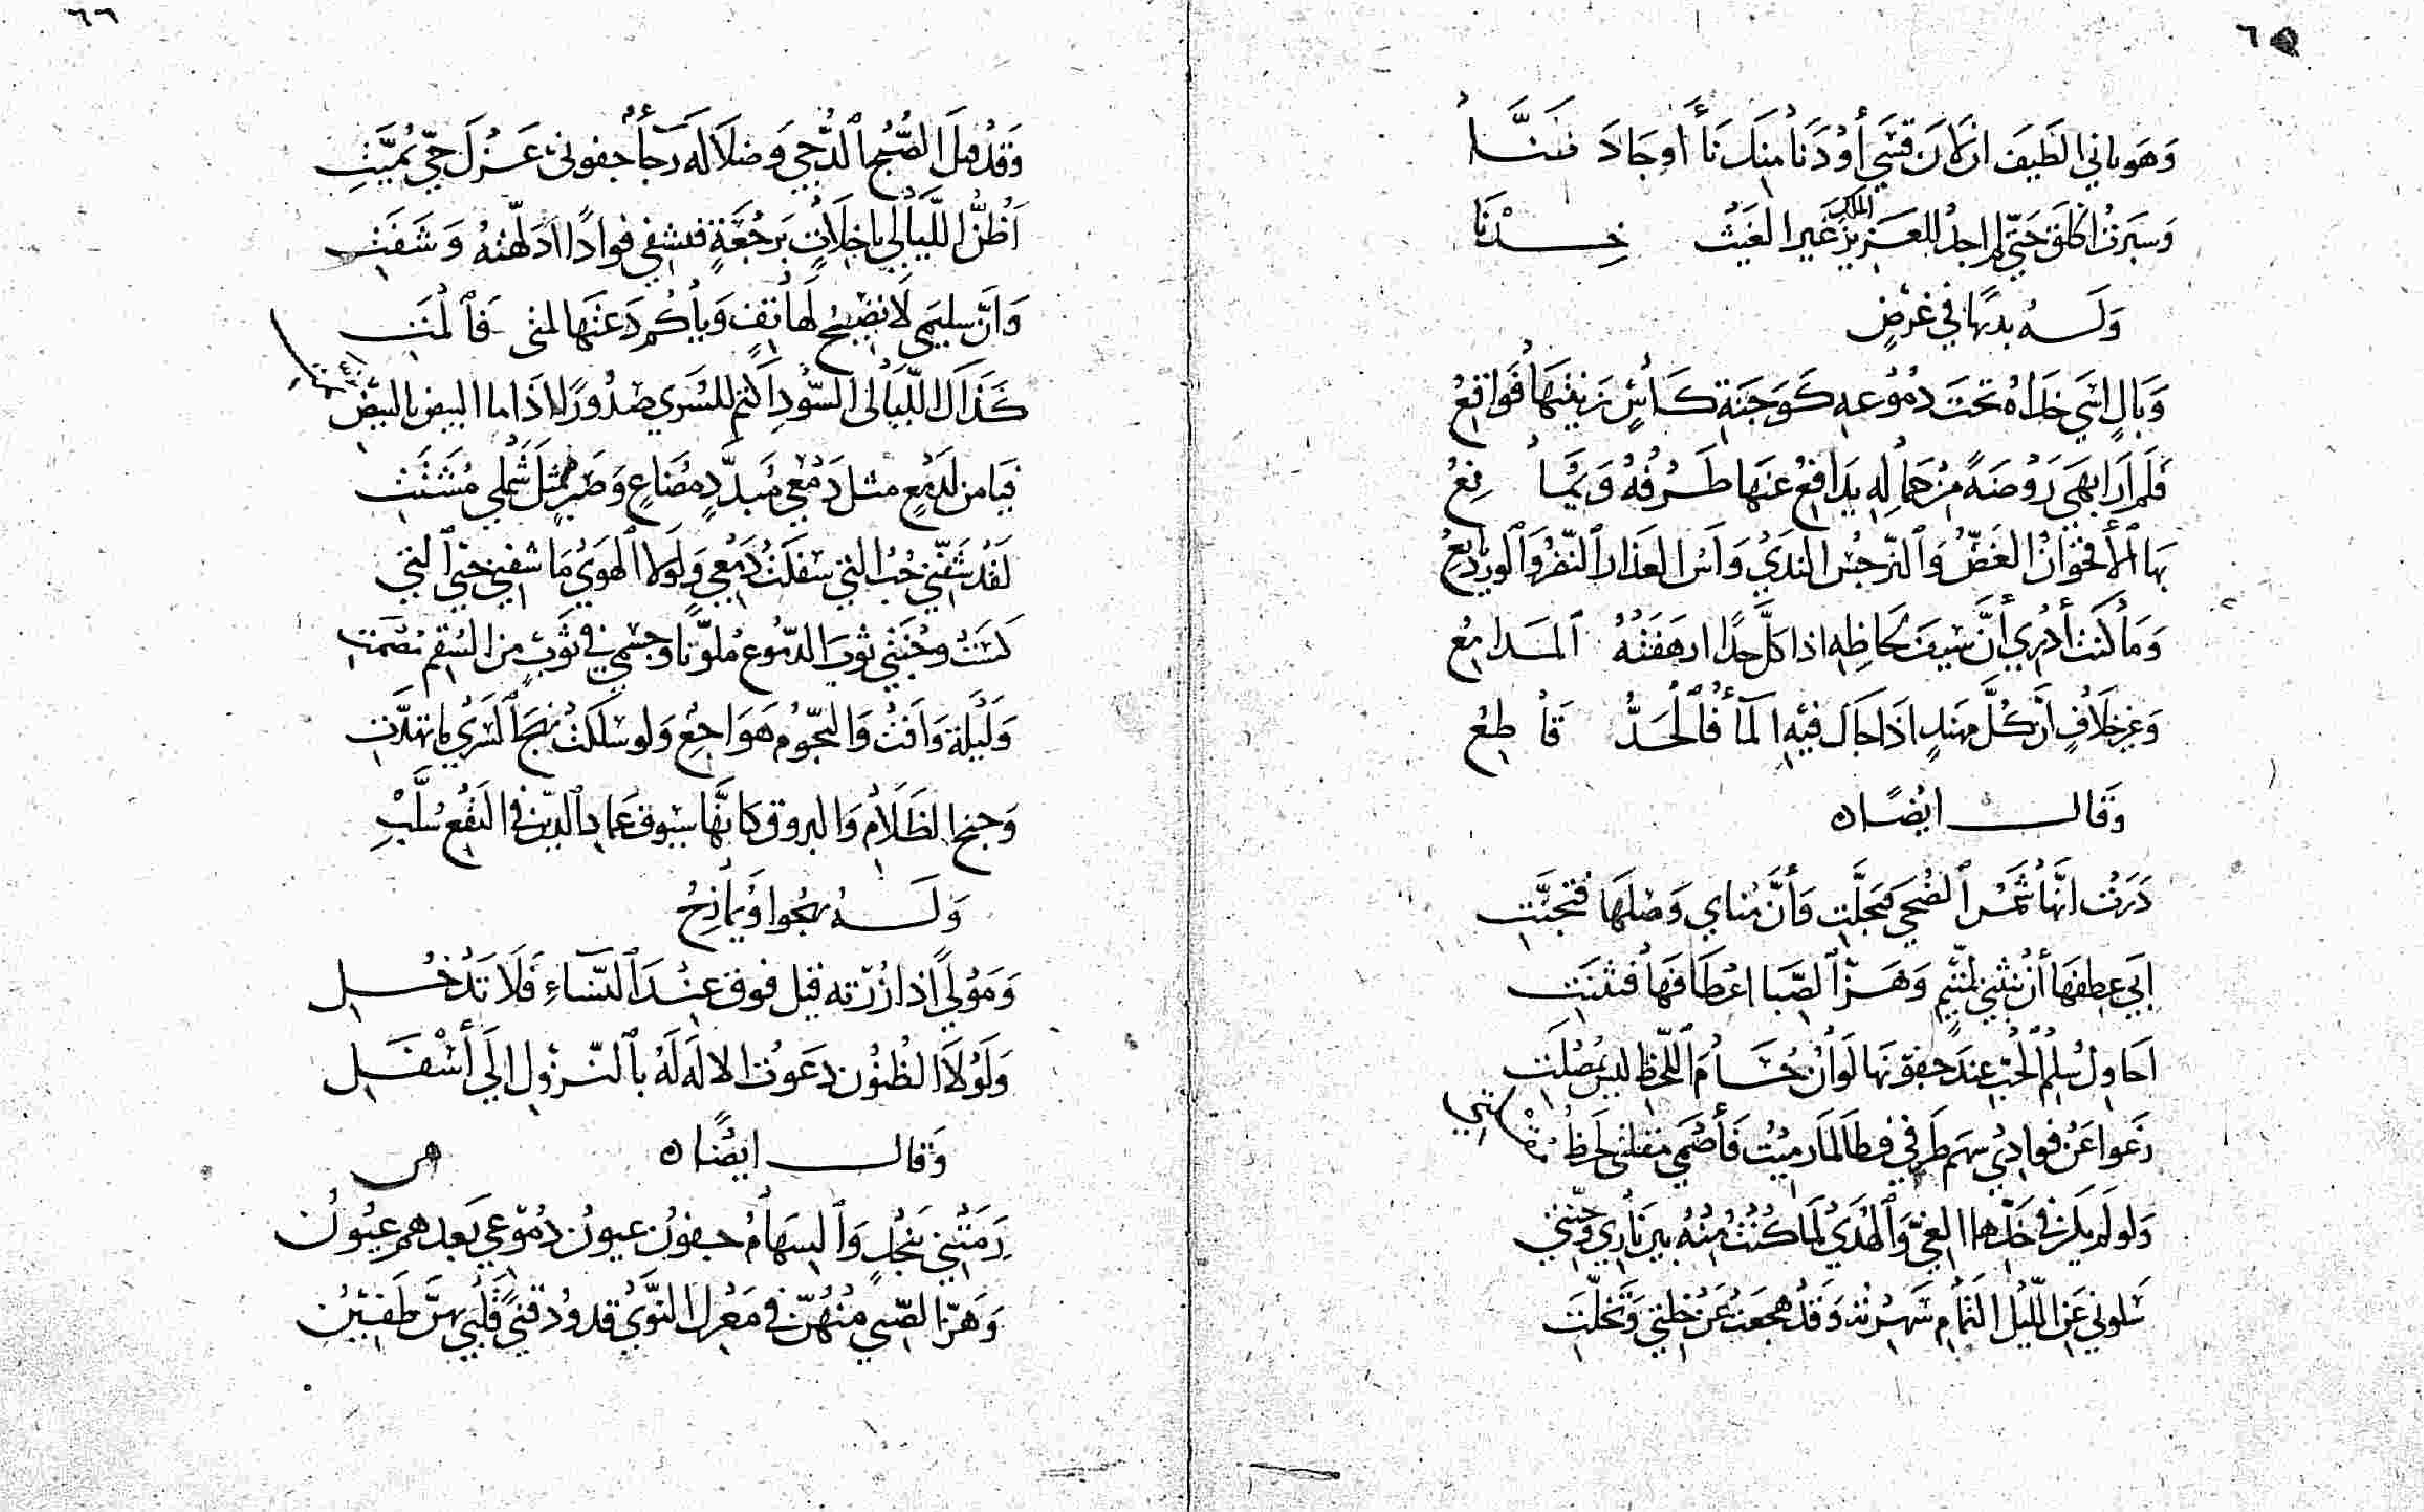 ٦٥
وَهَويانى الطَيفَ ان لانَ قسَى أو دَنا منك نَأَ اوجَادَ ضَنَّا
وَسَبَرتُ اَكلقَ حَتّى لم اجدُ للعَزيز الملك غَير الغَيثُ خِدْنَا
وَلَهُ بديهًا في غرَضٍ
وَبَالٍ اسَىً خدّاهُ تحَتَ دمُوُعهِ كَوَجنَةِ كَأسٍ زينتهَا فَواقعُ
فَلم ارَ ابهَى رَوُضةً من جمالِهِ يدافعُ عنهَا طَرْفُهُ وَيمُانِعُ
بهَا الأقحوَانُ الغَضُّ وَالنّرجسُ الندَىُ وَآسُ العذار النّضرُ وَالورد يانعُ
وَمَا كنتُ أدرِي أنَّ سَيفَ لحاظِهِ اذا كلَّ حدًّا ارهَفَتْهُ المَدَامِعُ
وَغير خلَافٍ أنَّ كُلَّ مهَندٍ اذَا جَالَ فيهِ المآءُ فالحَدُّ قَاطِعُ
وَقَالَ ايضًا ه
دَرَتْ انّهَا شمسُ الضُحَى فَتجلَّتِ وَأنَّ منَاى وَصلهَا فتجنَّتِ
ابَى عِطفهَا أنْ ينثنى لمتيّمٍ وَهَزَّ الصّبَا اعْطَافهَا فتثنَتِ
احَاولُ سلِمَ الُحبِ عندَ جفونهَا لَوَ انَّ حُسَامَ اللّحظِ ليسَ بمُصلَتِ
دَعوا عَنْ فوادِي سهمَ طَرفي فطالمَا رميْتُ فَأصْمَى مقلتى لحَظُ مقلتي
وَلو لَم يكن فى خَدّهَا الغيُّ وَالهُدَيُ لمَا كُنتُ مِنهُ بين نَارِي وَجنّتي
سَلونى عَنِ اللّيْلِ التمَامِ سَهرْتهُ وَقدْ هجَعتْ عَنْ خلتى وَتخلّتِ
٦٦
وَقدْ قبلَ الصُبْحُ الدُّجى وَضلَالَه رجآءُ جفونى غزلَ حىّ بميّتِ
اَظُنُّ اللّيَالِي باخِلَاتٍ بَرجْعَةٍ فتشفي فوادًا ادَلهّتهُ وَشَفَتِ
وَانَّ سليمَى لَا تصيخُ لهَاتفٍ وَيا كُم دَعَتهَا لمنى فَالْمَتِ
كَذَاكَ اللّيَالى السّودِ اكتم للسُرَي صُدُورًا اذَا ما البيض بالبيض
فيَا من لدَمْعٍ مثلَ دَمْعي مُبدَّدٍ مضَاعٍ وَصبرٍ مثلَ شَملي مُشَتَّتِ
لَقدْ شَفّنى حُبُ التي سفكَتْ دَمِي وَلَولا الهَويُ مَا شفنى حبّى التي
كسَتْ وجنتي ثوبَ الدمُوع مُلوّنا وجسْمى فى ثَوبٍ منَ السُقم مُصمَتِ
وَلَيْلةَ وَافَتْ وَالنجُومُ هَوَاجِعٌ وَلو سَلكَتْ نهجَ السَريُ ما تهدّتِ
وَجنح الظَلَامِ وَالبروق كانّهَا سيُوف عمَاد الدّين في النَقْعِ سُلَّتِ
وَلَهُ يهجُوا وَيمازِحُ
وَمَوْلًي اذا زُرْته قيل فوق عنْدَ النّسَاءِ فَلَا تَدْخُلِ
وَلَوْلَا الظُنوُن دعَوتُ الالَه لَهُ بالنّزولِ الَى أسْفَلِ
وَقالَ ايضًا ه
رَمَتْنى بنجْلٍ وَالسِهَامُ جفونُ عيونُ دمُوعِي بَعدهم عيُونُ
وَهَزَّ الصّبي منْهُنّ في مَعْركِ النّويُ قدودُ قنىً قَلْبي بهنَّ طَعِينُ